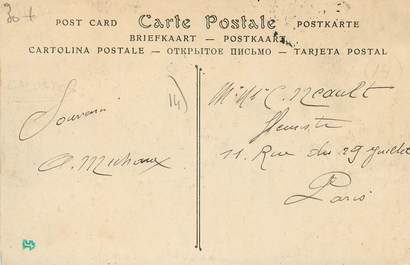 POST CARD Carte Postale POSTKARTE
BRIEFKAART — POSTKAART
CARTOLINA POSTALE — ОТКРЫТОЕ ПИСЬМО — TARJETA POSTAL
Souvenir
A. Michaux
14)
C. Neault
11, Rue du 29 Juillet
Paris